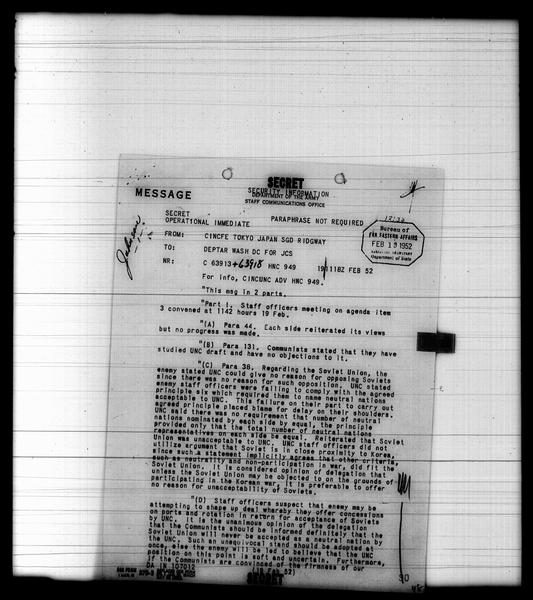 SECRET
SECURITY INFORMATION
DEPARTMENT OF THE ARMY
STAFF COMMUNICATIONS OFFICE
MESSAGE
SECRET
OPERATIONAL IMMEDIATE
PARAPHRASE NOT REQUIRED
Bureau of
FAR EASTERN AFFAIRS
FEB 1 1952
Department of State
FROM: CINCFE TOKYO JAPAN SGD RIDGWAY
TO: DEPTAR WASH DC FOR JCS
NR: C 63913 +63918 HNC 949 FEB 52
For info, CINCUNC ADV HNC 949.
"This msg in 2 parts.
"Part I. Staff officers meeting on agenda item
3 convened at 1142 hours 19 Feb.
"(A) Para 44. Each side reiterated its views
but no progress was made.
"(B) Para 131. Communists stated that they have
studied UNC draft and have no objections to it.
"(C) Para 36. Regarding the Soviet Union, the
enemy stated UNC could give no reason for opposing Soviets
since there was no reason for such opposition. UNC stated
enemy staff officers were failing to comply with the agreed
principle six which required them to name neutral nations
acceptable to UNC. This failure on their part to carry out
agreed principle placed blame for delay on their shoulders.
UNC said there was no requirement that number of neutral
nations nominated by each side by equal, the principle
provided only that the total number of neutral nation
representatives on each side be equal. Reiterated that Soviet
Union was unacceptable to UNC. UNC staff officers did not
utilize argument that Soviet is in close proximity to Korea,
since such a statement implicitly agrees that other criteria,
such as neutrality and non-participation in war, did fit the
Soviet Union. It is considered opinion of delegation that
unless the Soviet Union may be objected to on the grounds of
participating in the Korean war, it is preferable to offer
no reason for unacceptability of Soviets.
"(D) Staff officers suspect that enemy may be
attempting to shape up deal whereby they offer concessions
on ports and rotation in return for acceptance of Soviets
by UNC. It is the unanimous opinion of the delegation
that the Communists should be informed definitely that the
Soviet Union will never be accepted as a neutral nation by
the UNC. Such an unequivocal stand should be adopted at
once, else the enemy will be led to believe that the UNC
position on this point is soft and uncertain. Furthermore,
if the Communists are convinced of the firmness of our
DA IN 107012
SECRET